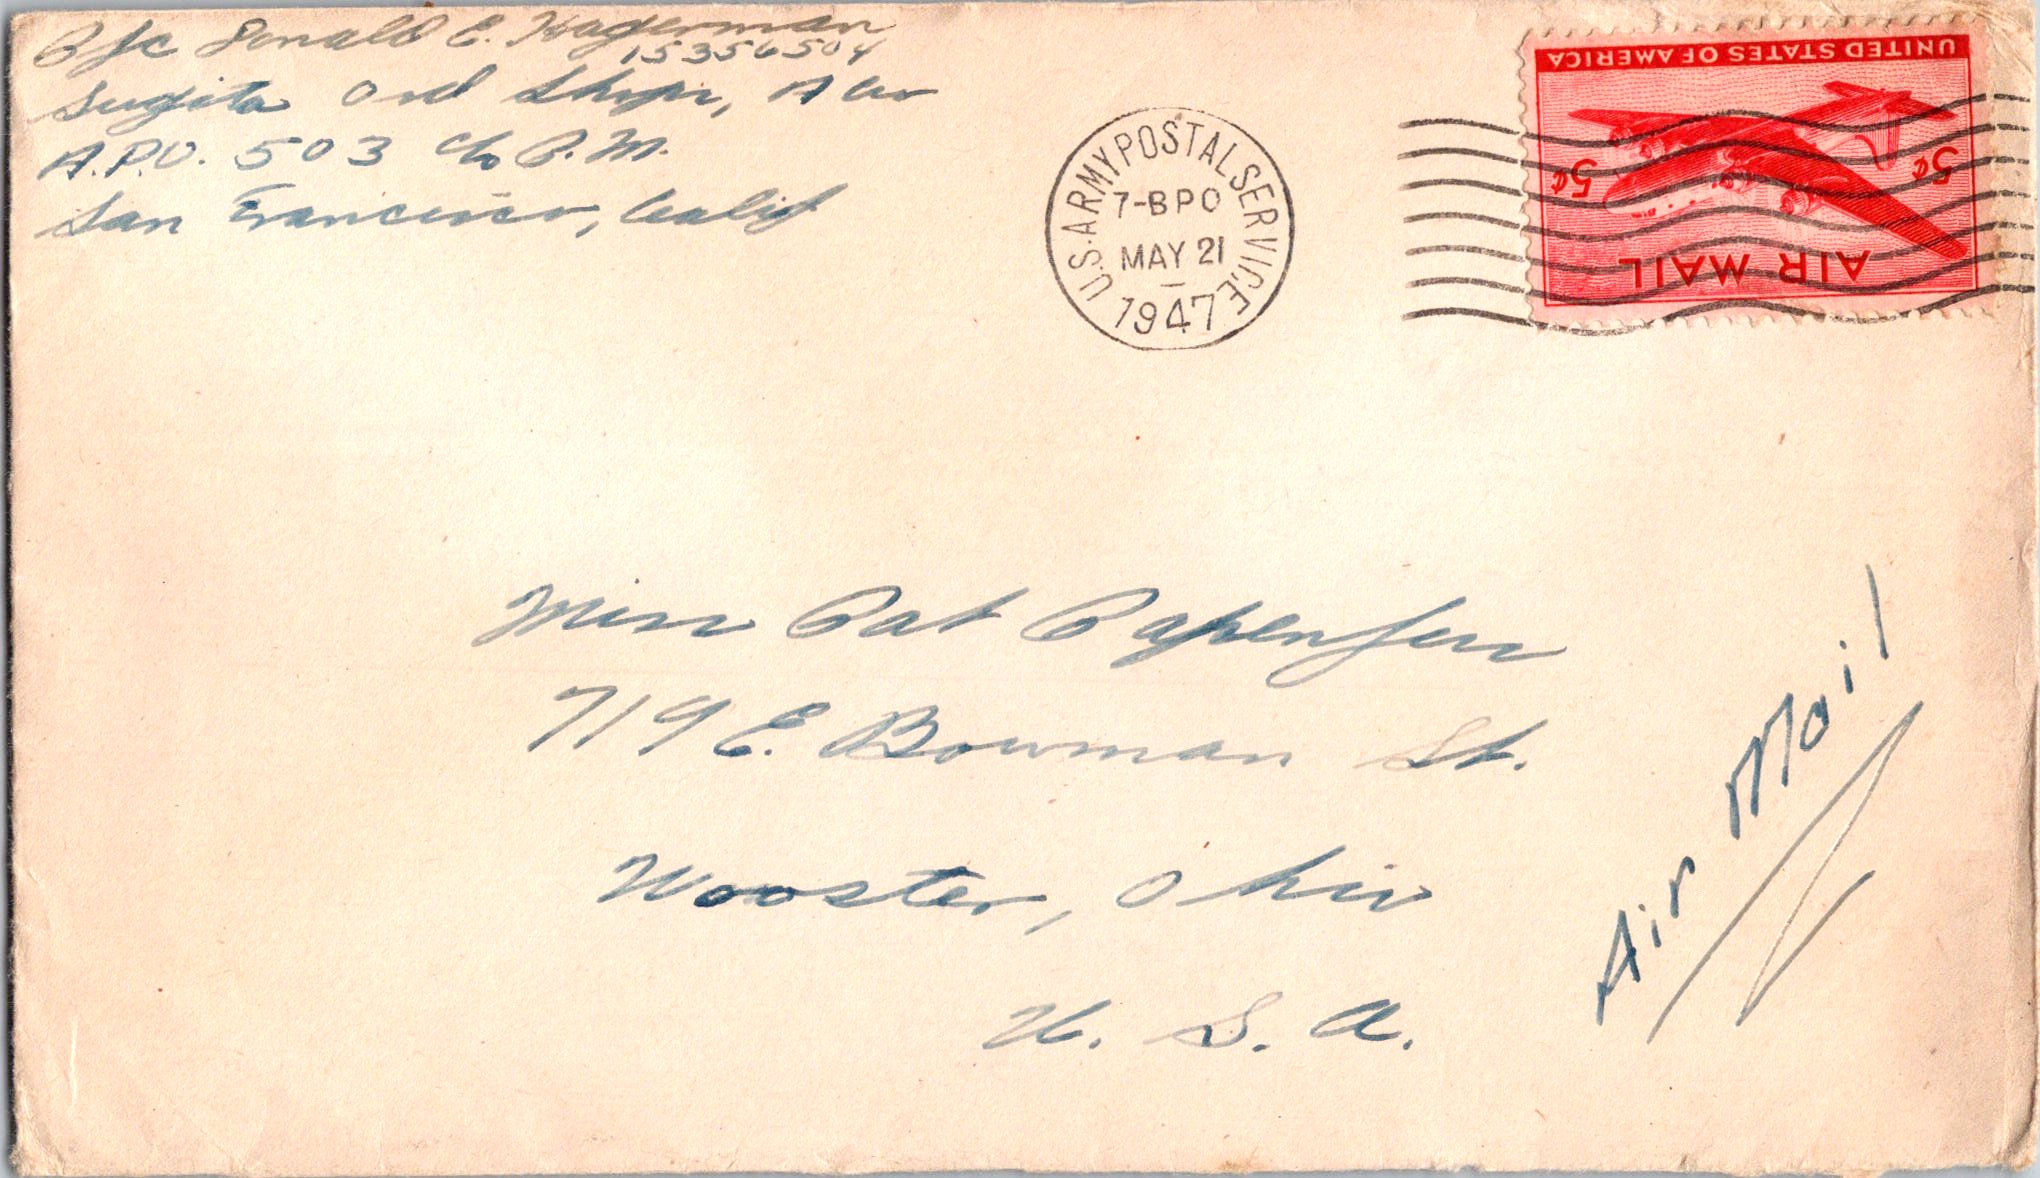 Pfc Donald E. Hagerman
15356504
Sugita Ord Shops,
A.P.O. 503 c/o P.M.
San Francisco, Calif
U.S. ARMY POSTAL SERVICE
7-BPO
MAY 21
1947
UNITED STATES OF AMERICA
5¢ 5¢
AIR MAIL
Miss Pat Papenfuss
719 E. Bowman St.
Wooster, Ohio
U. S. A.
Air Mail